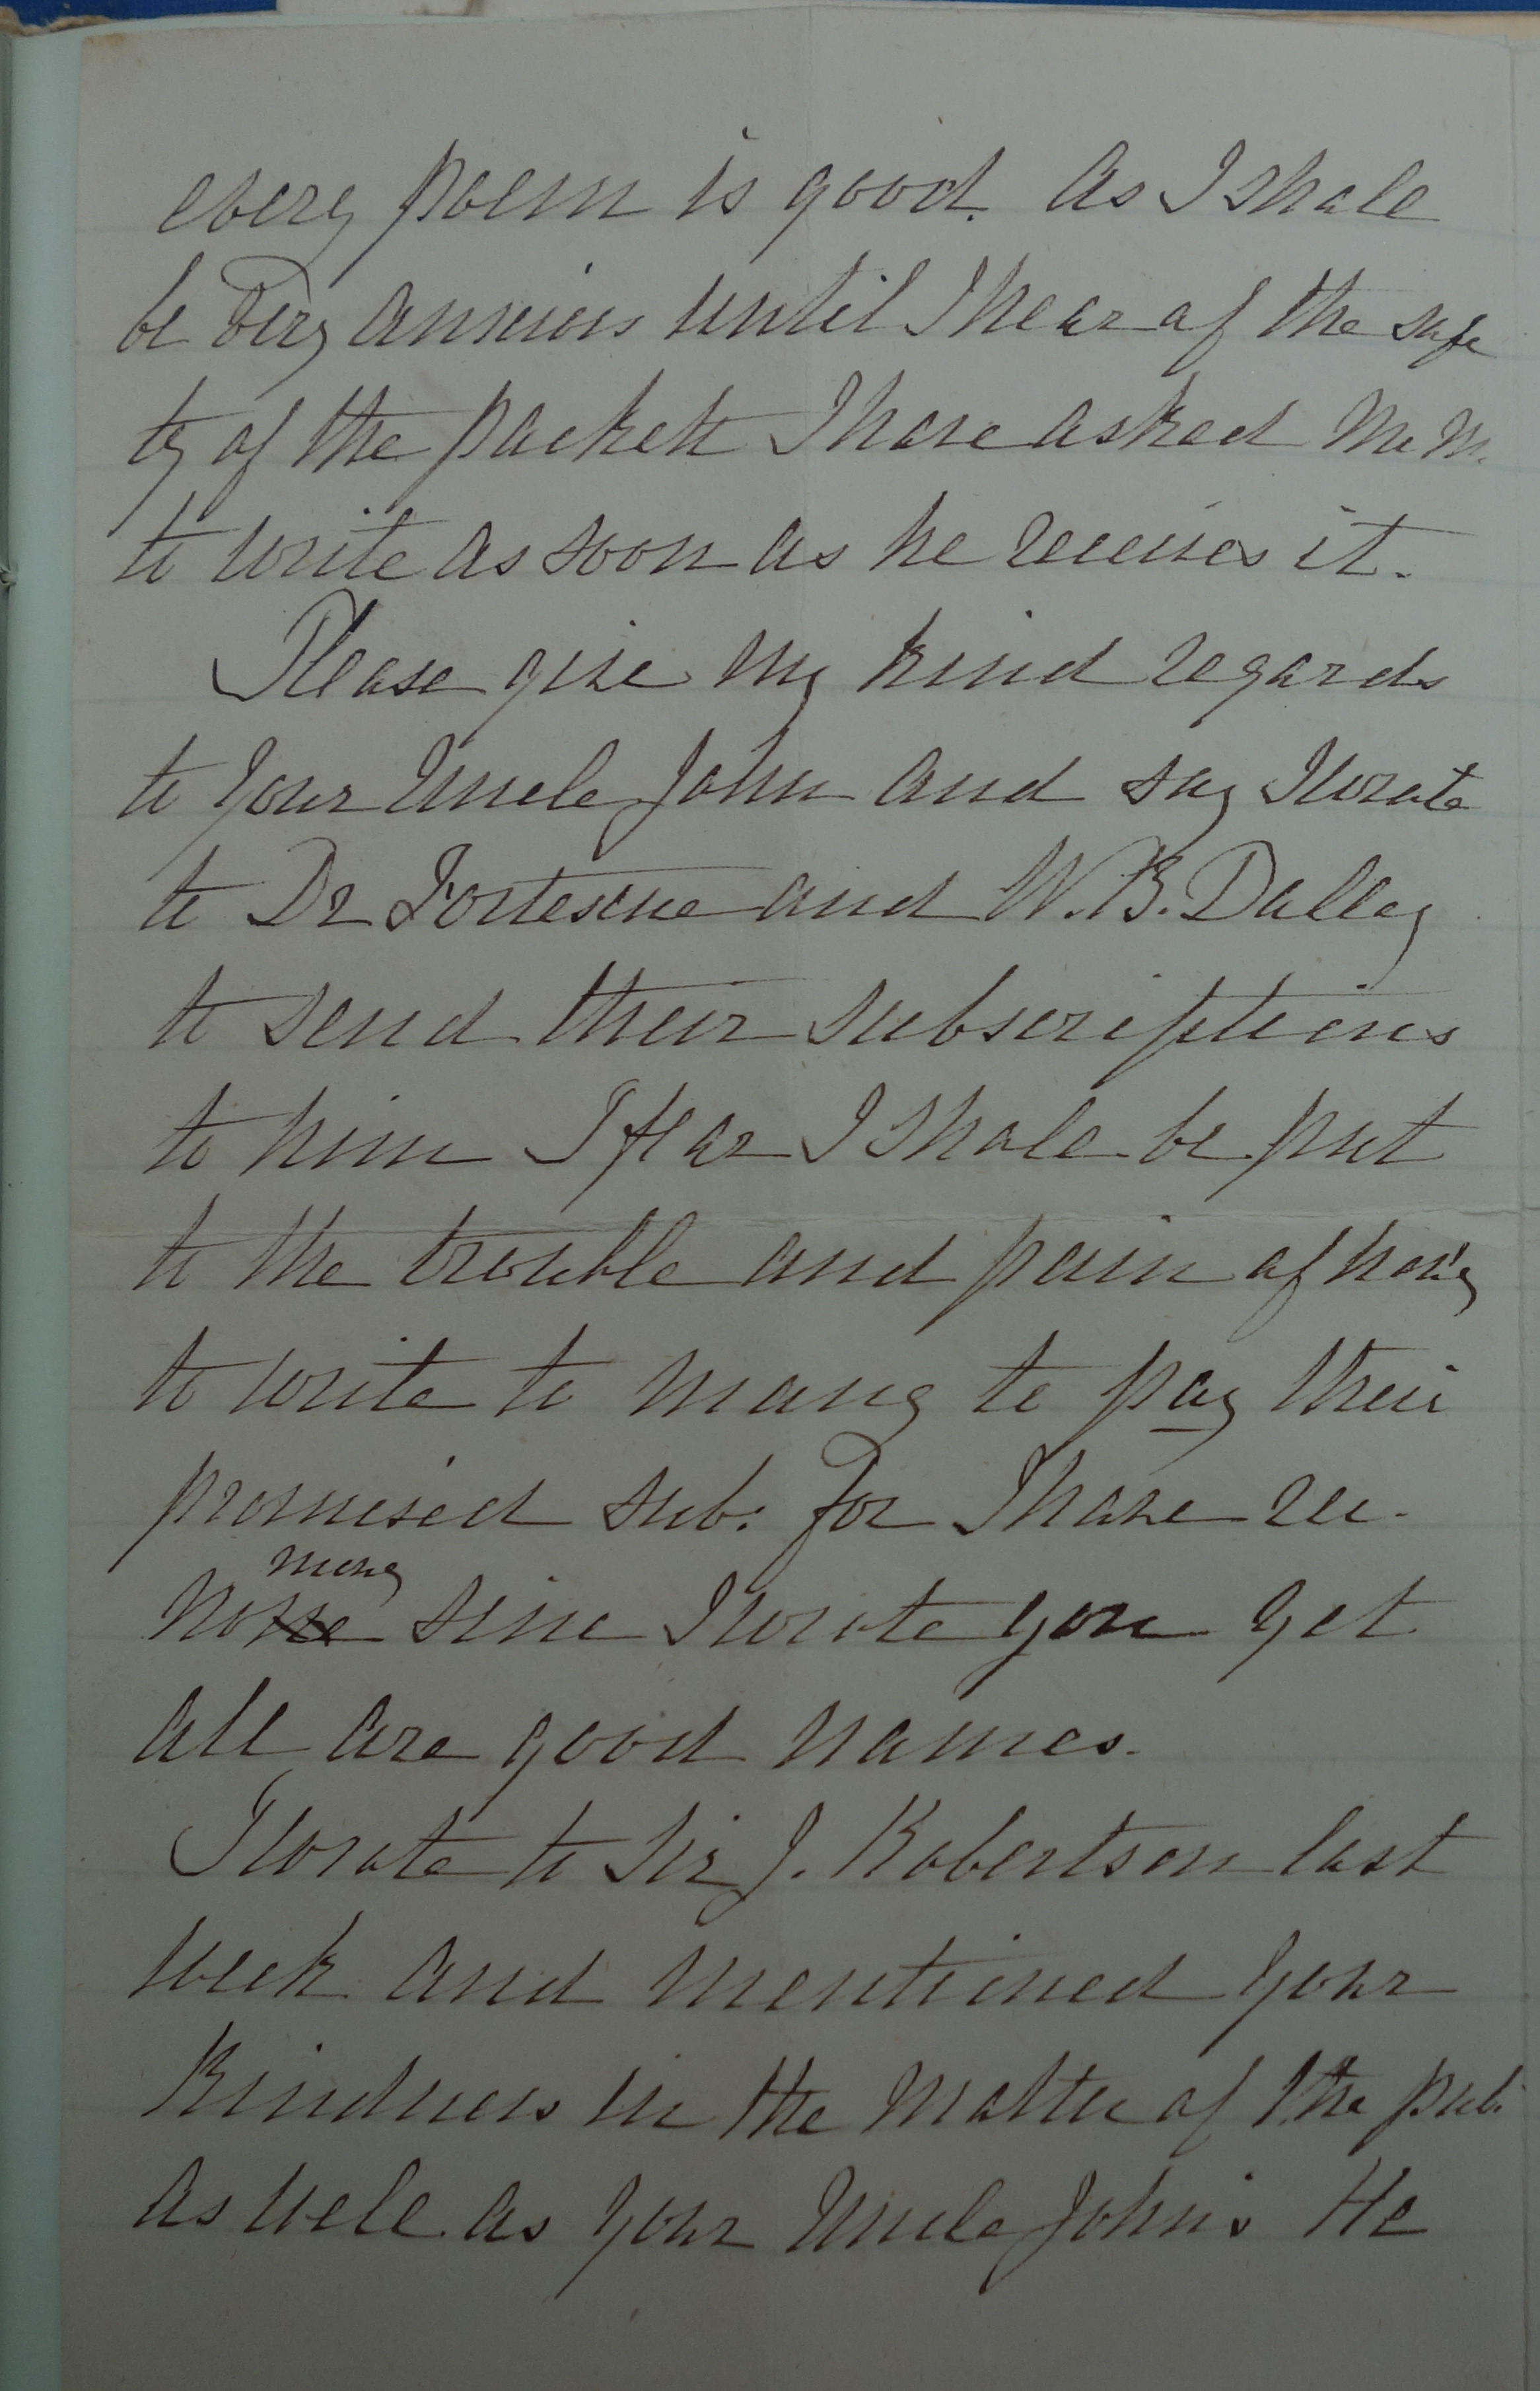 every poem is good. As I shall
be very anxious until I hear of the safe
ty of the packett I have asked Mr M.
to write as soon as he receives it.
Please give my kind regards
to your Uncle John and say I wrote
to Dr Fortescue and W. B. Dalley
to send their subscriptions
to him I fear I shall be put
to the trouble and pain of hav'g
to write to many to pay their
promised sub. for I have rec.
money
none since I wrote you yet
all are good names.
I wrote to Sir J. Robertson last
week and mentioned your
kindness in the matter of the pub.
as well as your Uncle John's He